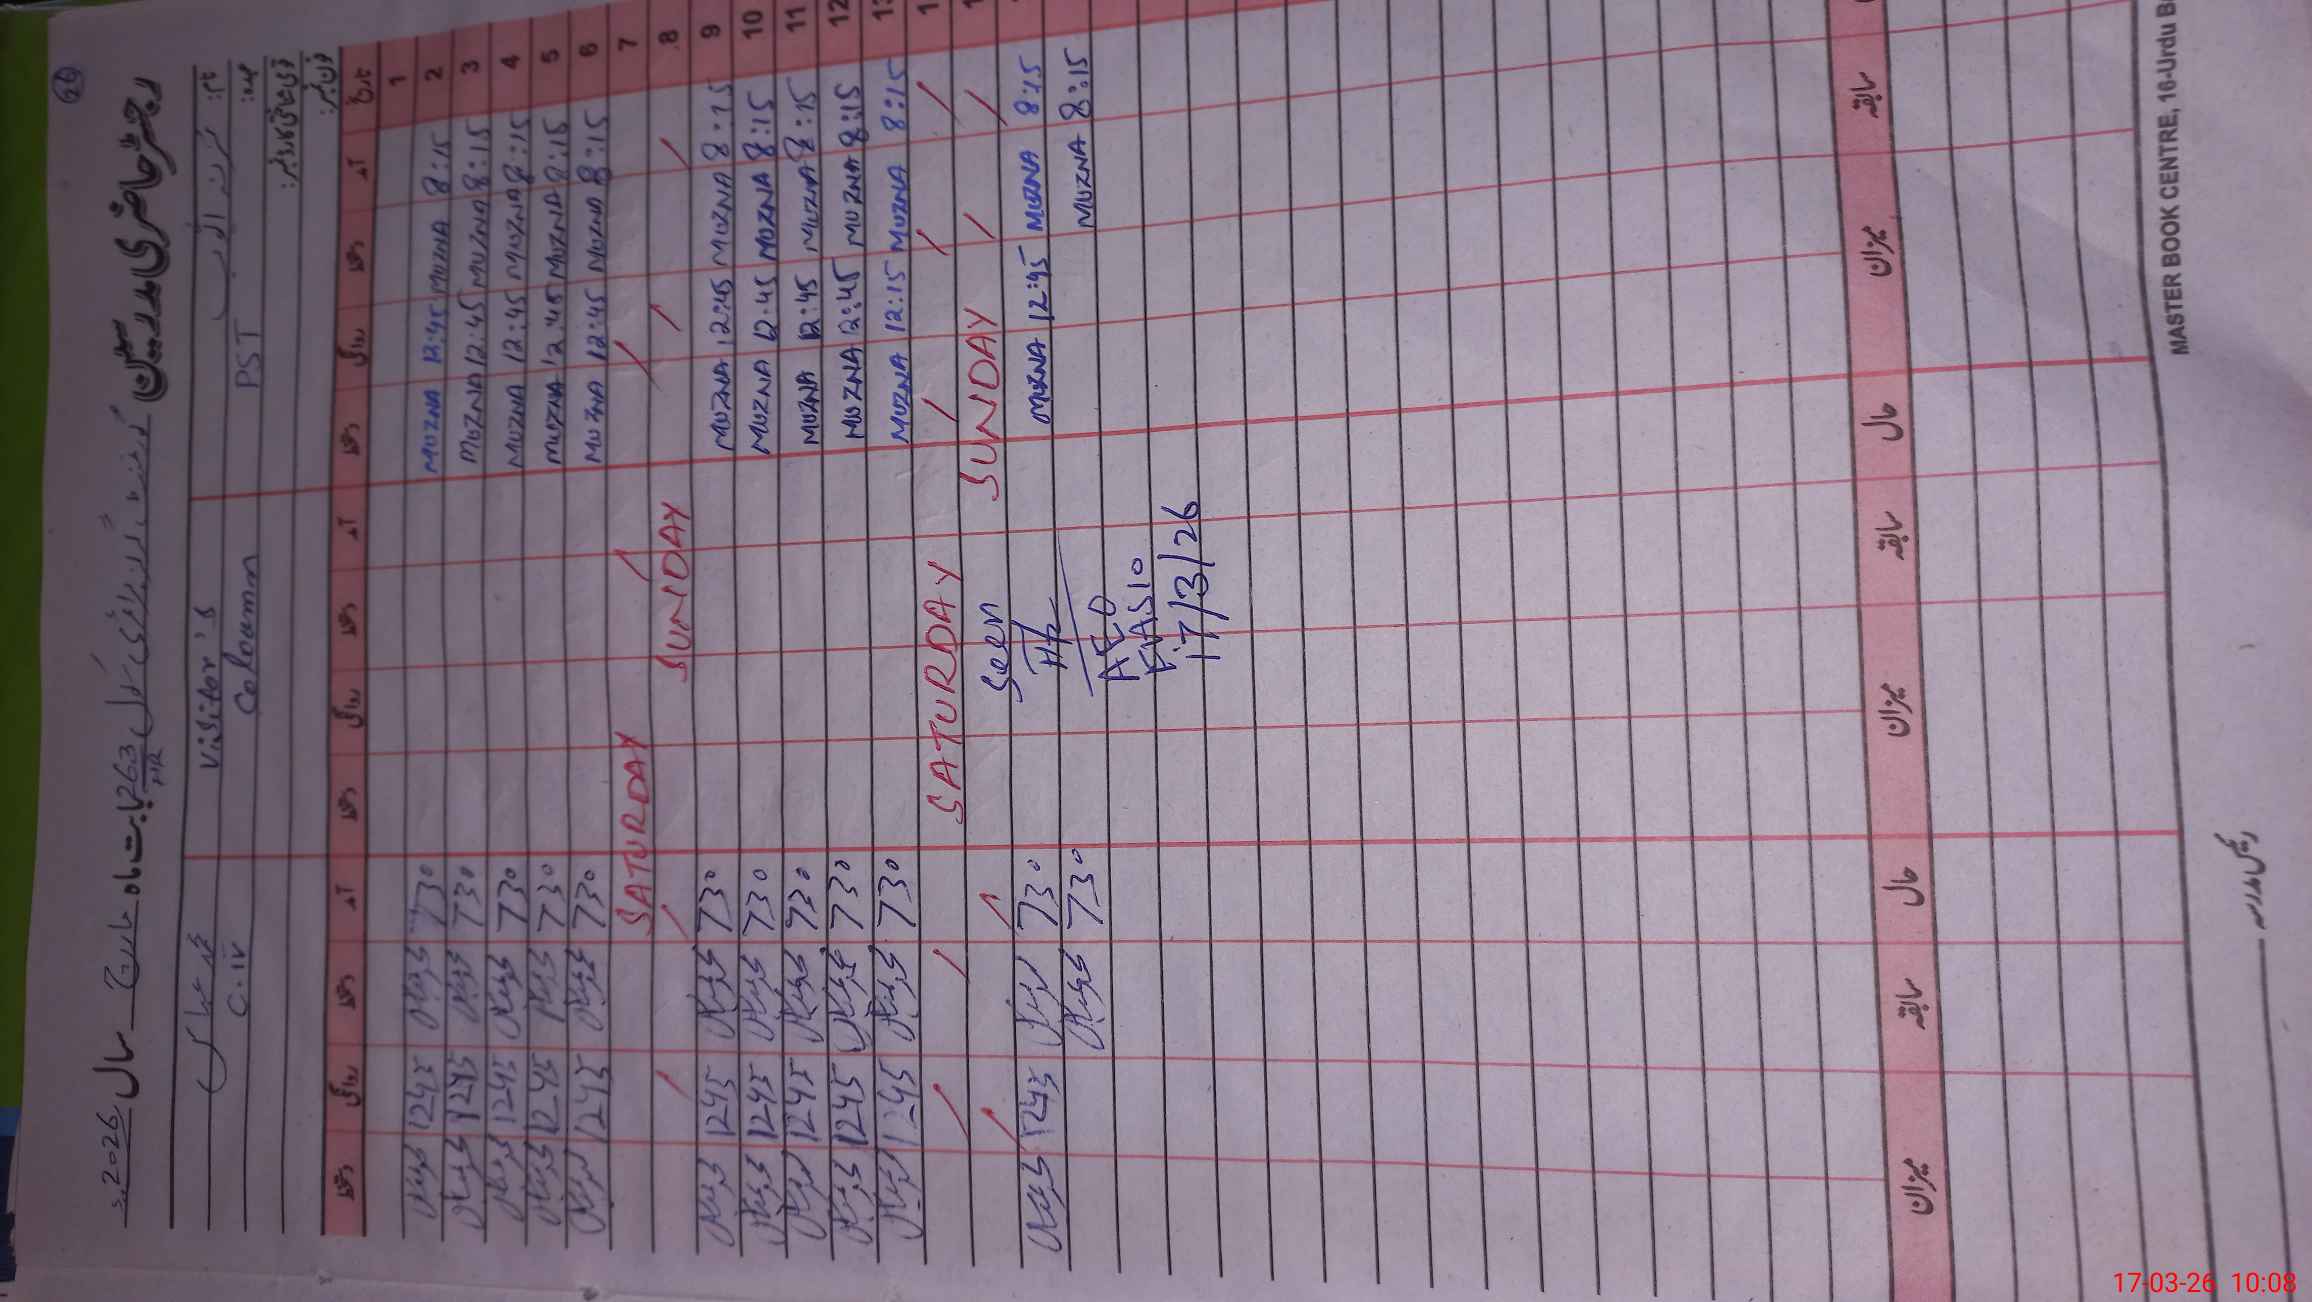 26
رجسٹر حاضری مدرسین گورنمنٹ گرلز پرائمری سکول 263 بابت ماہ مارچ سال 2026ء
HR
نام:
Visitor's
عہدہ: PST
Coloumn
C.iv
شناختی کارڈ نمبر:
فون نمبر:
تاریخ آمد دستخط روانگی دستخط آمد دستخط روانگی دستخط آمد دستخط روانگی دستخط
1
2 8:15 MUZNA 12:45 MUZNA 730 1245
3 8:15 MUZNA 12:45 MUZNA 730 1245
4 8:15 MUZNA 12:45 MUZNA 730 1245
5 8:15 MUZNA 12:45 MUZNA 730 1245
6 8:15 MUZNA 12:45 MUZNA 730 1245
7 SATURDAY
8 SUNDAY
9 8:15 MUZNA 12:45 MUZNA 730 1245
10 8:15 MUZNA 12:45 MUZNA 730 1245
11 8:15 MUZNA 12:45 MUZNA 730 1245
12 8:15 MUZNA 12:45 MUZNA 730 1245
13 8:15 MUZNA 12:15 MUZNA 730 1245
SATURDAY
SUNDAY
8:15 MUZNA 12:45 MUZNA 730 1245
8:15 MUZNA 730
Seen
AEO
17/3/26
سابقہ میزان حال سابقہ میزان حال سابقہ میزان
MASTER BOOK CENTRE, 16-Urdu B
رئیس مدرسہ
17-03-26 10:08